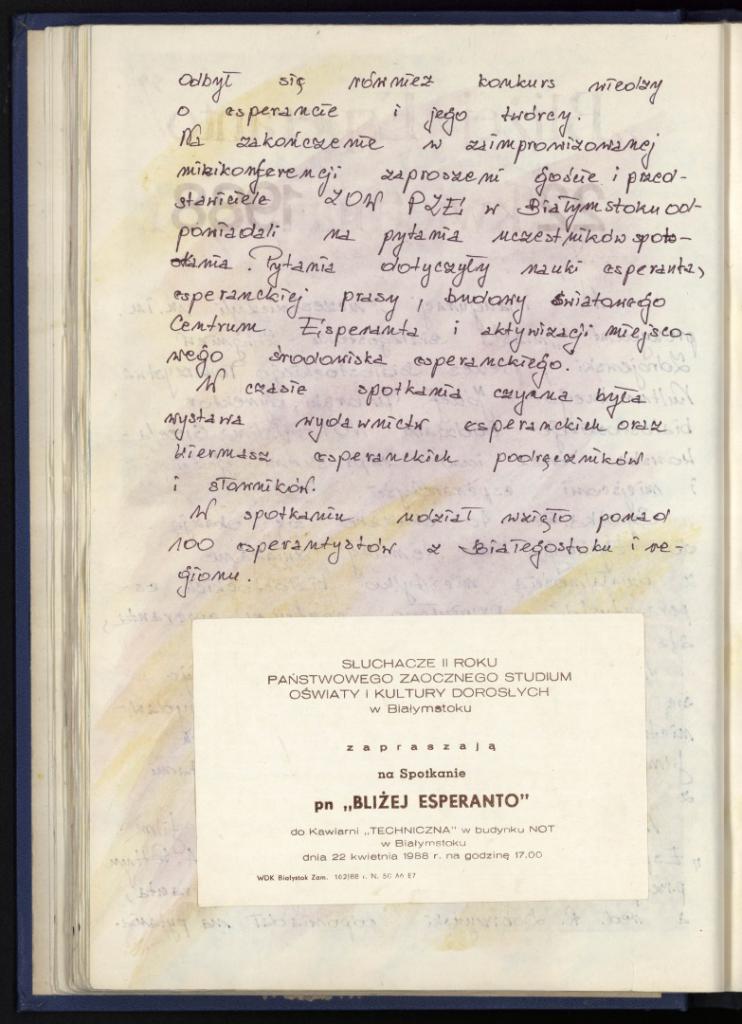 Odbył się również konkurs wiedzy
o esperancie i jego twórcy.
Na zakończenie w zaimprowizowanej
minikonferencji zaproszeni goście i przed-
stawiciele ZOW PZE w Białymstoku od-
powiadali na pytania uczestników spot-
kania. Pytania dotyczyły nauki esperanta,
esperanckiej prasy, budowy Światowego
Centrum Esperanta i aktywizacji miejsco-
wego środowiska esperanckiego.
W czasie spotkania czynna była
wystawa wydawnictw esperanckich oraz
kiermasz esperanckich podręczników
i słowników.
W spotkaniu udział wzięło ponad
100 esperantystów z Białegostoku i re-
gionu.
SŁUCHACZE II ROKU
PAŃSTWOWEGO ZAOCZNEGO STUDIUM
OŚWIATY I KULTURY DOROSŁYCH
w Białymstoku
zapraszają
na Spotkanie
pn „BLIŻEJ ESPERANTO"
do Kawiarni „TECHNICZNA" w budynku NOT
w Białymstoku
dnia 22 kwietnia 1988 r. na godzinę 17.00
WDK Białystok Zam. 162/88 r. N. 50 A6 E7